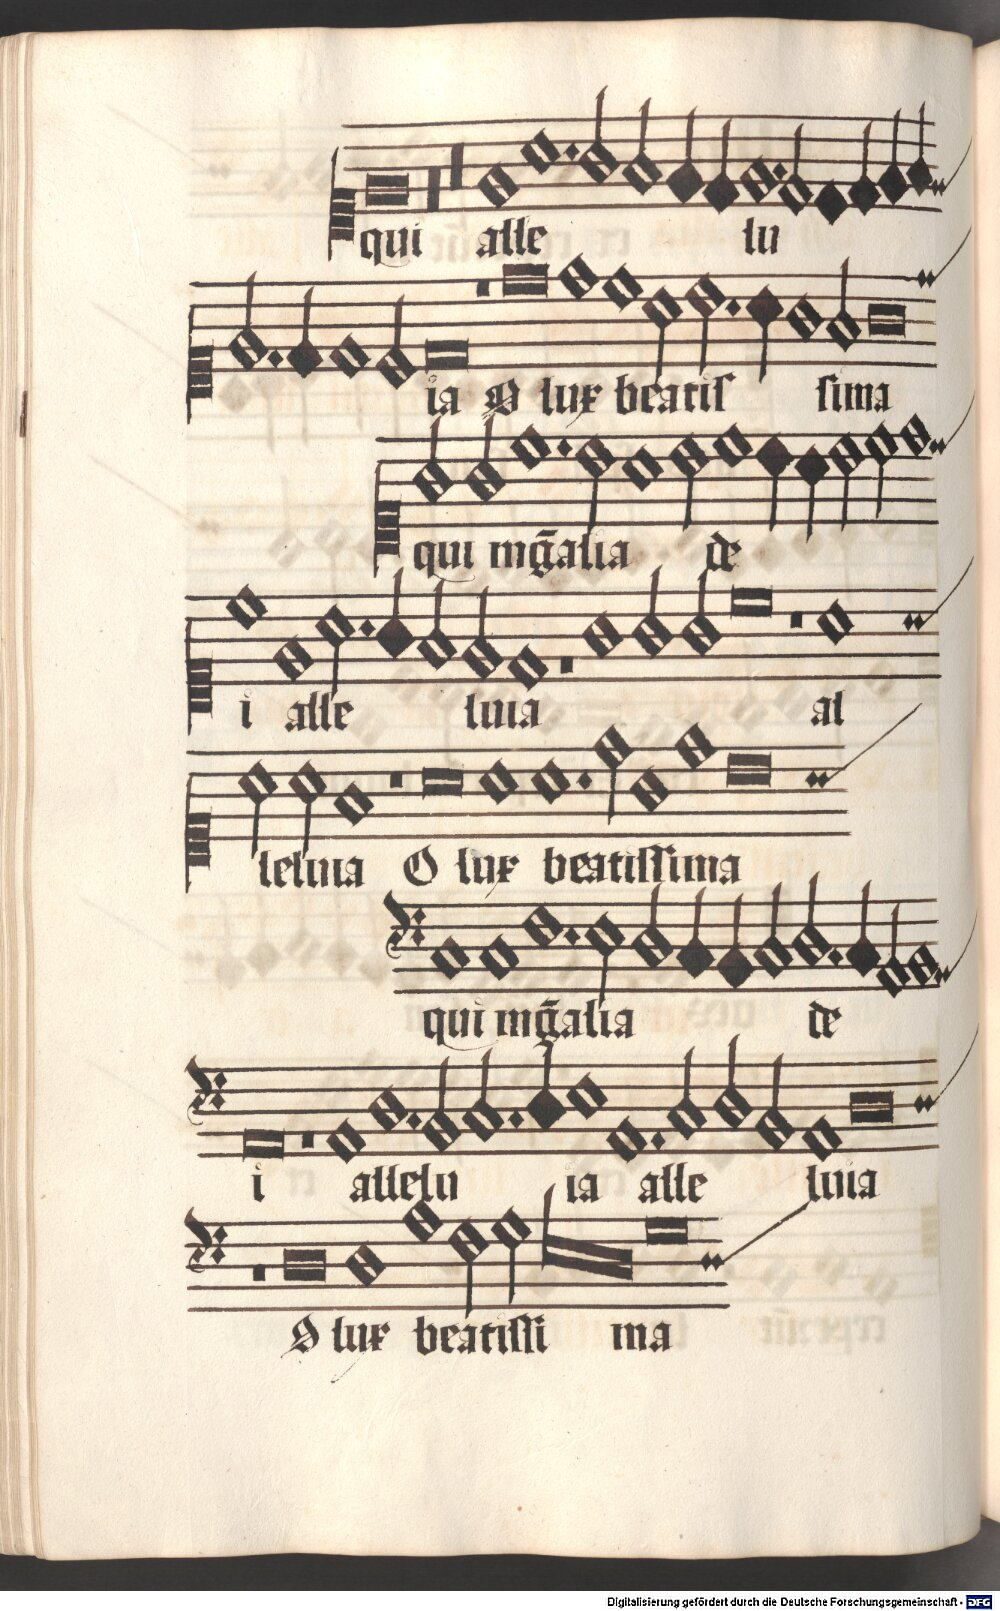 qui alle lu
ia O lux beatis sima
qui mg̃alia de
i alle luia al
leluia O lux beatissima
qui mg̃alia de
i allelu ia alle luia
O lux beatissi ma
Digitalisierung gefördert durch die Deutsche Forschungsgemeinschaft - DFG